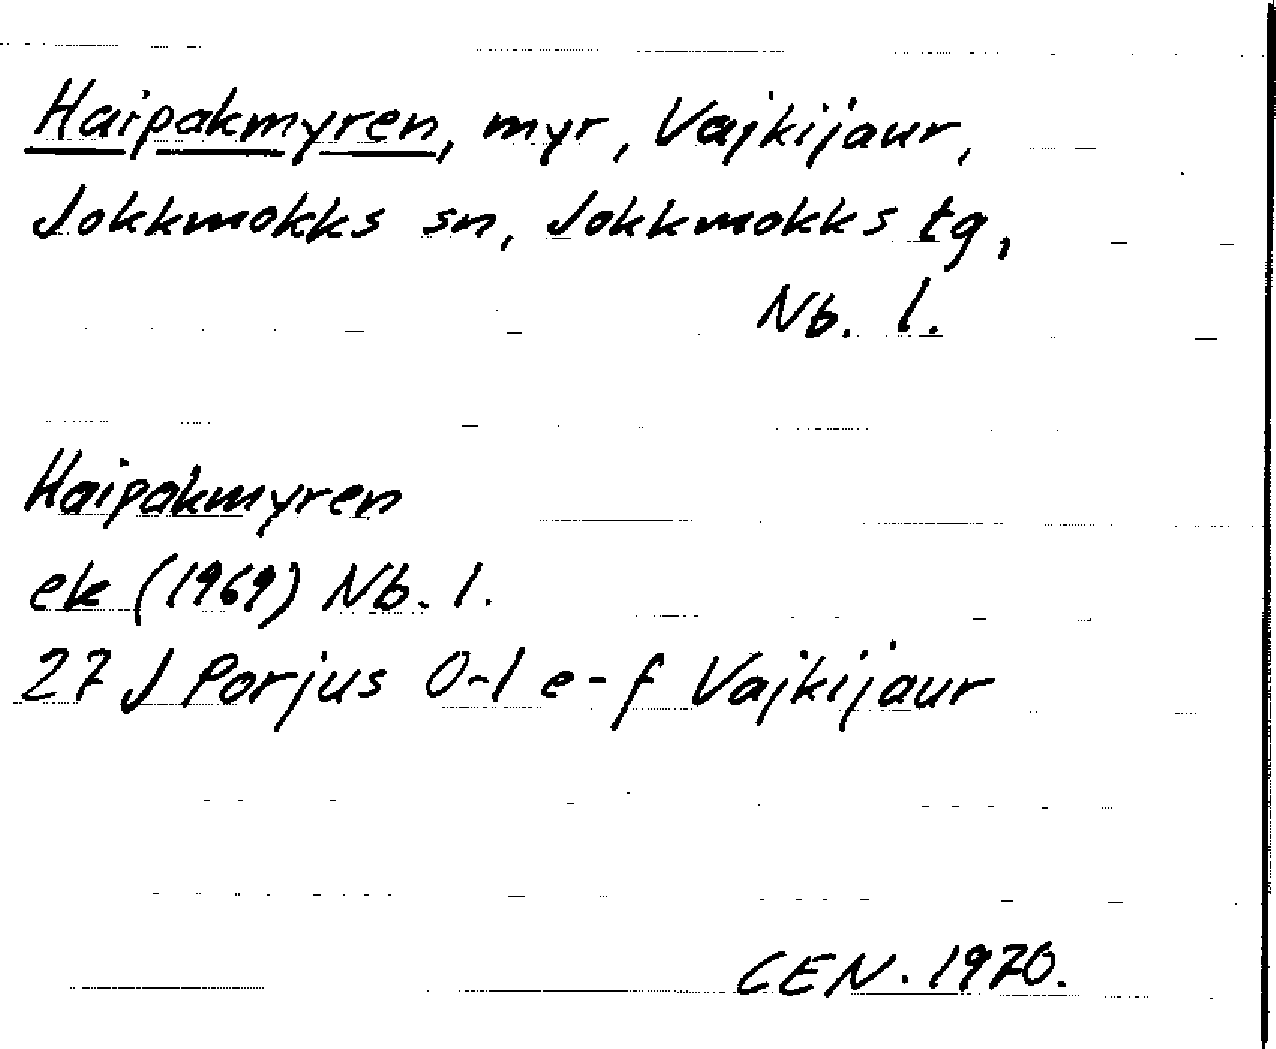 Haipakmyren, myr, Vajkijaur,
Jokkmokks sn, Jokkmokks tg,
Nb. l.
Haipakmyren
ek (1969) Nb. l.
27 J Porjus 0-1 e-f Vajkijaur
CEN. 1970.